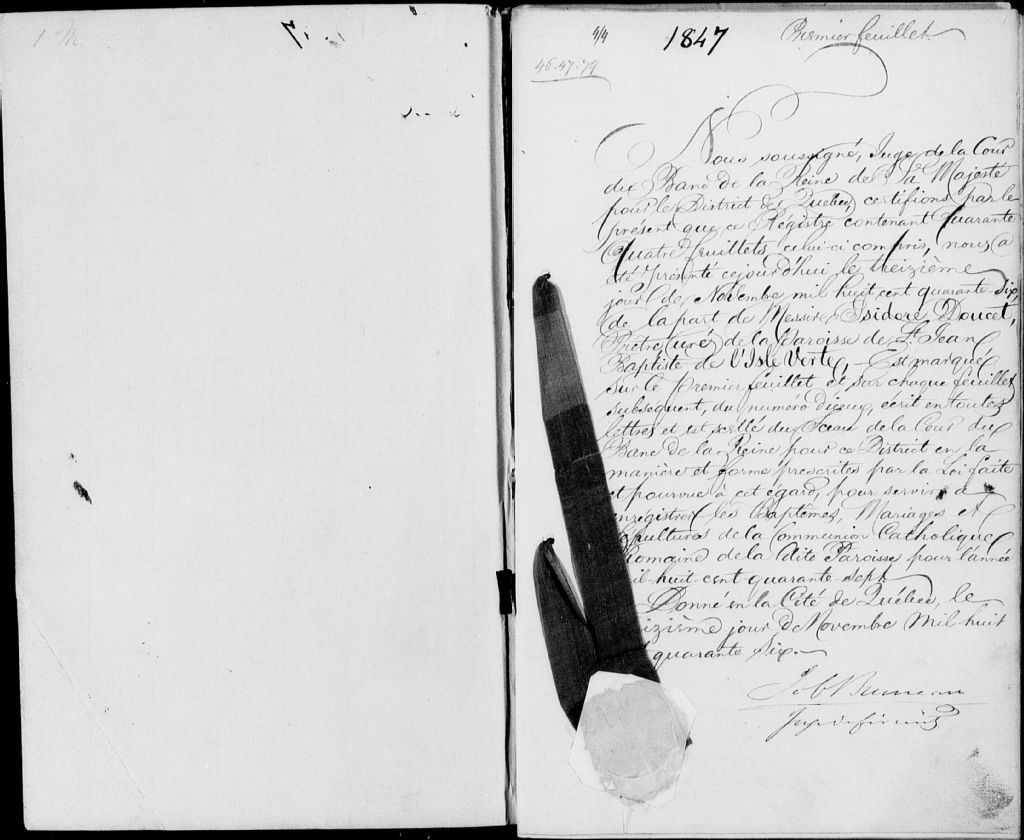 4/4
1847
Premier feuillet
46.47.79
Nous soussigné, Juge de la Cour
du Banc de la Reine de Sa Majesté
pour le District de Quebec, certifions par le
présent que ce Régistre contenant Quarante
Quatre feuillets, celui-ci compris, nous a
été présenté cejourd'hui le treizième
jour de Novembre mil huit cent quarante-Six,
de la part de Messire Isidore Doucet,
Prêtre Curé de la Paroisse de St. Jean
Baptiste de l'Isle Verte, - Est marqué
sur le premier feuillet et sur chaque feuillet
subséquent, du numéro Dixeux, écrit en toutes
lettres et est scellé du Sceau de la Cour du
Banc de la Reine pour ce District en la
manière et forme prescrites par la Loi faite
et pourvue à cet égard, pour servir à
enregistrer les Baptêmes, Mariages et
Sépultures de la Communion Catholique
Romaine de la dite Paroisse pour l'année
mil-huit-cent quarante-sept.
Donné en la Cité de Québec, le
izième jour de Novembre Mil huit
quarante Six.-